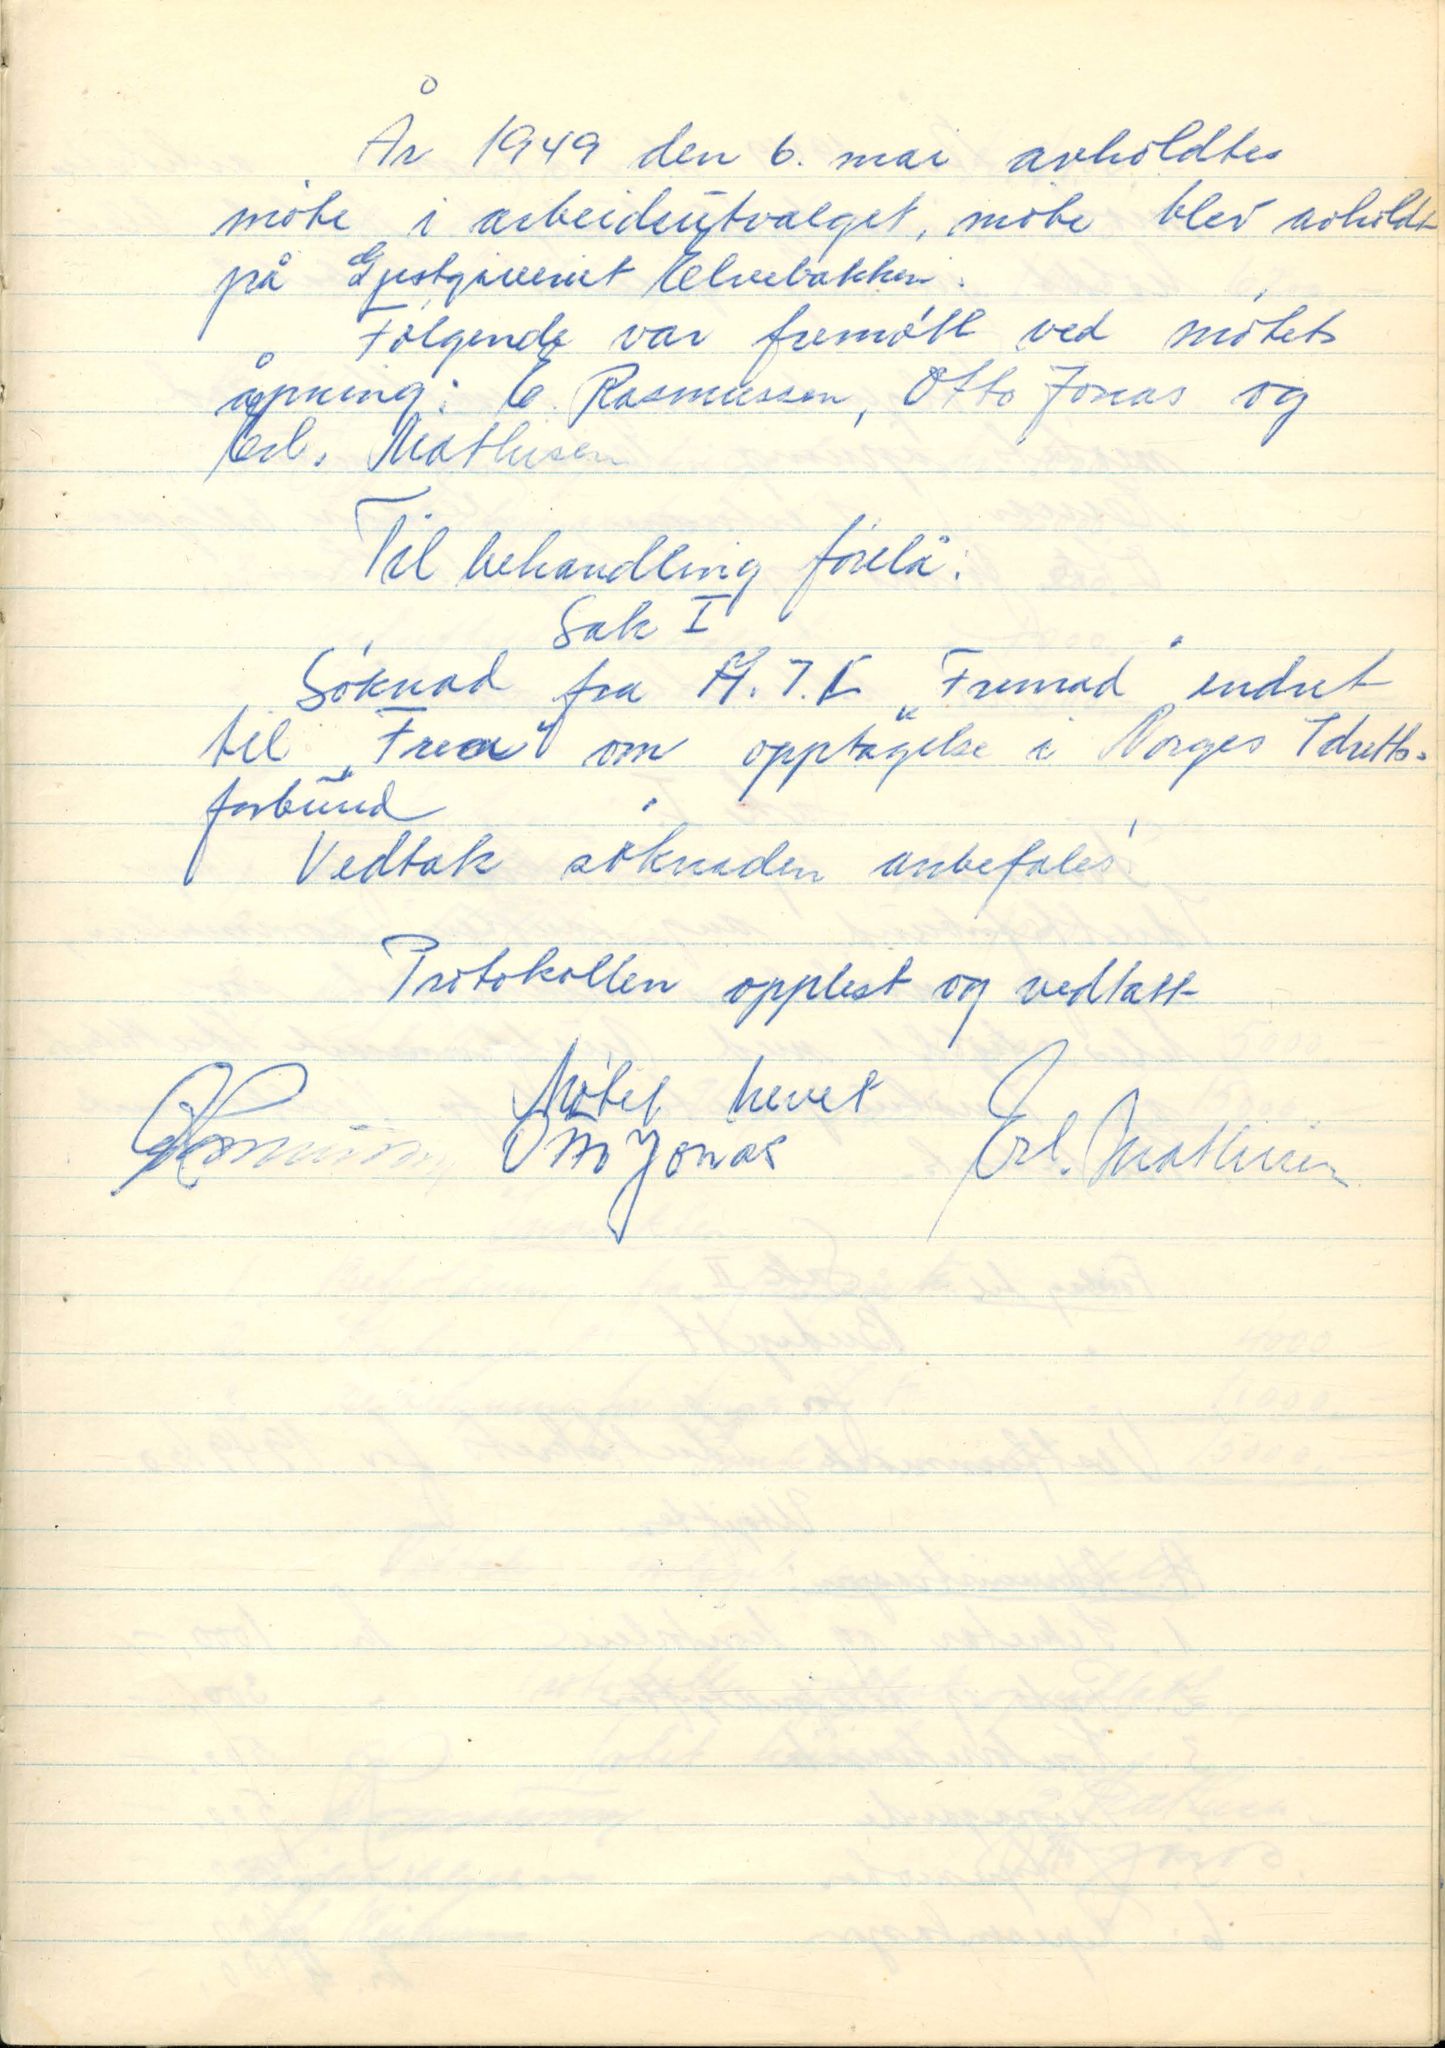 År 1949 den 6. mai avholdtes
møte i arbeidsutvalget, møte blev avholdt
på Gjestgiveriet Elvebakken.
Følgende var fremøtt ved møtets
åpning: E. Rasmussen, Otto Jonas og
Erl. Mathisen
Til behandling forelå:
Sak I
Søknad fra A.I.K „Fremad" endret
til „Frea" om opptagelse i Norges Idretts-
forbund
Vedtak søknaden anbefales!
Protokollen opplest og vedtatt
Møtet hevet
Otto Jonas Erl. Mathisen